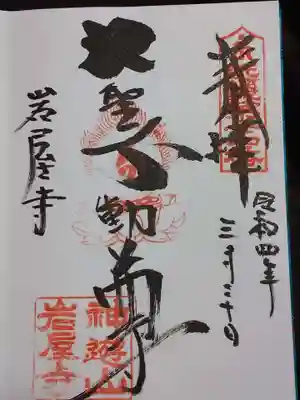 奉拝
令和四年
三月二十日
大聖不動尊
岩屋寺
神遊山
岩屋寺